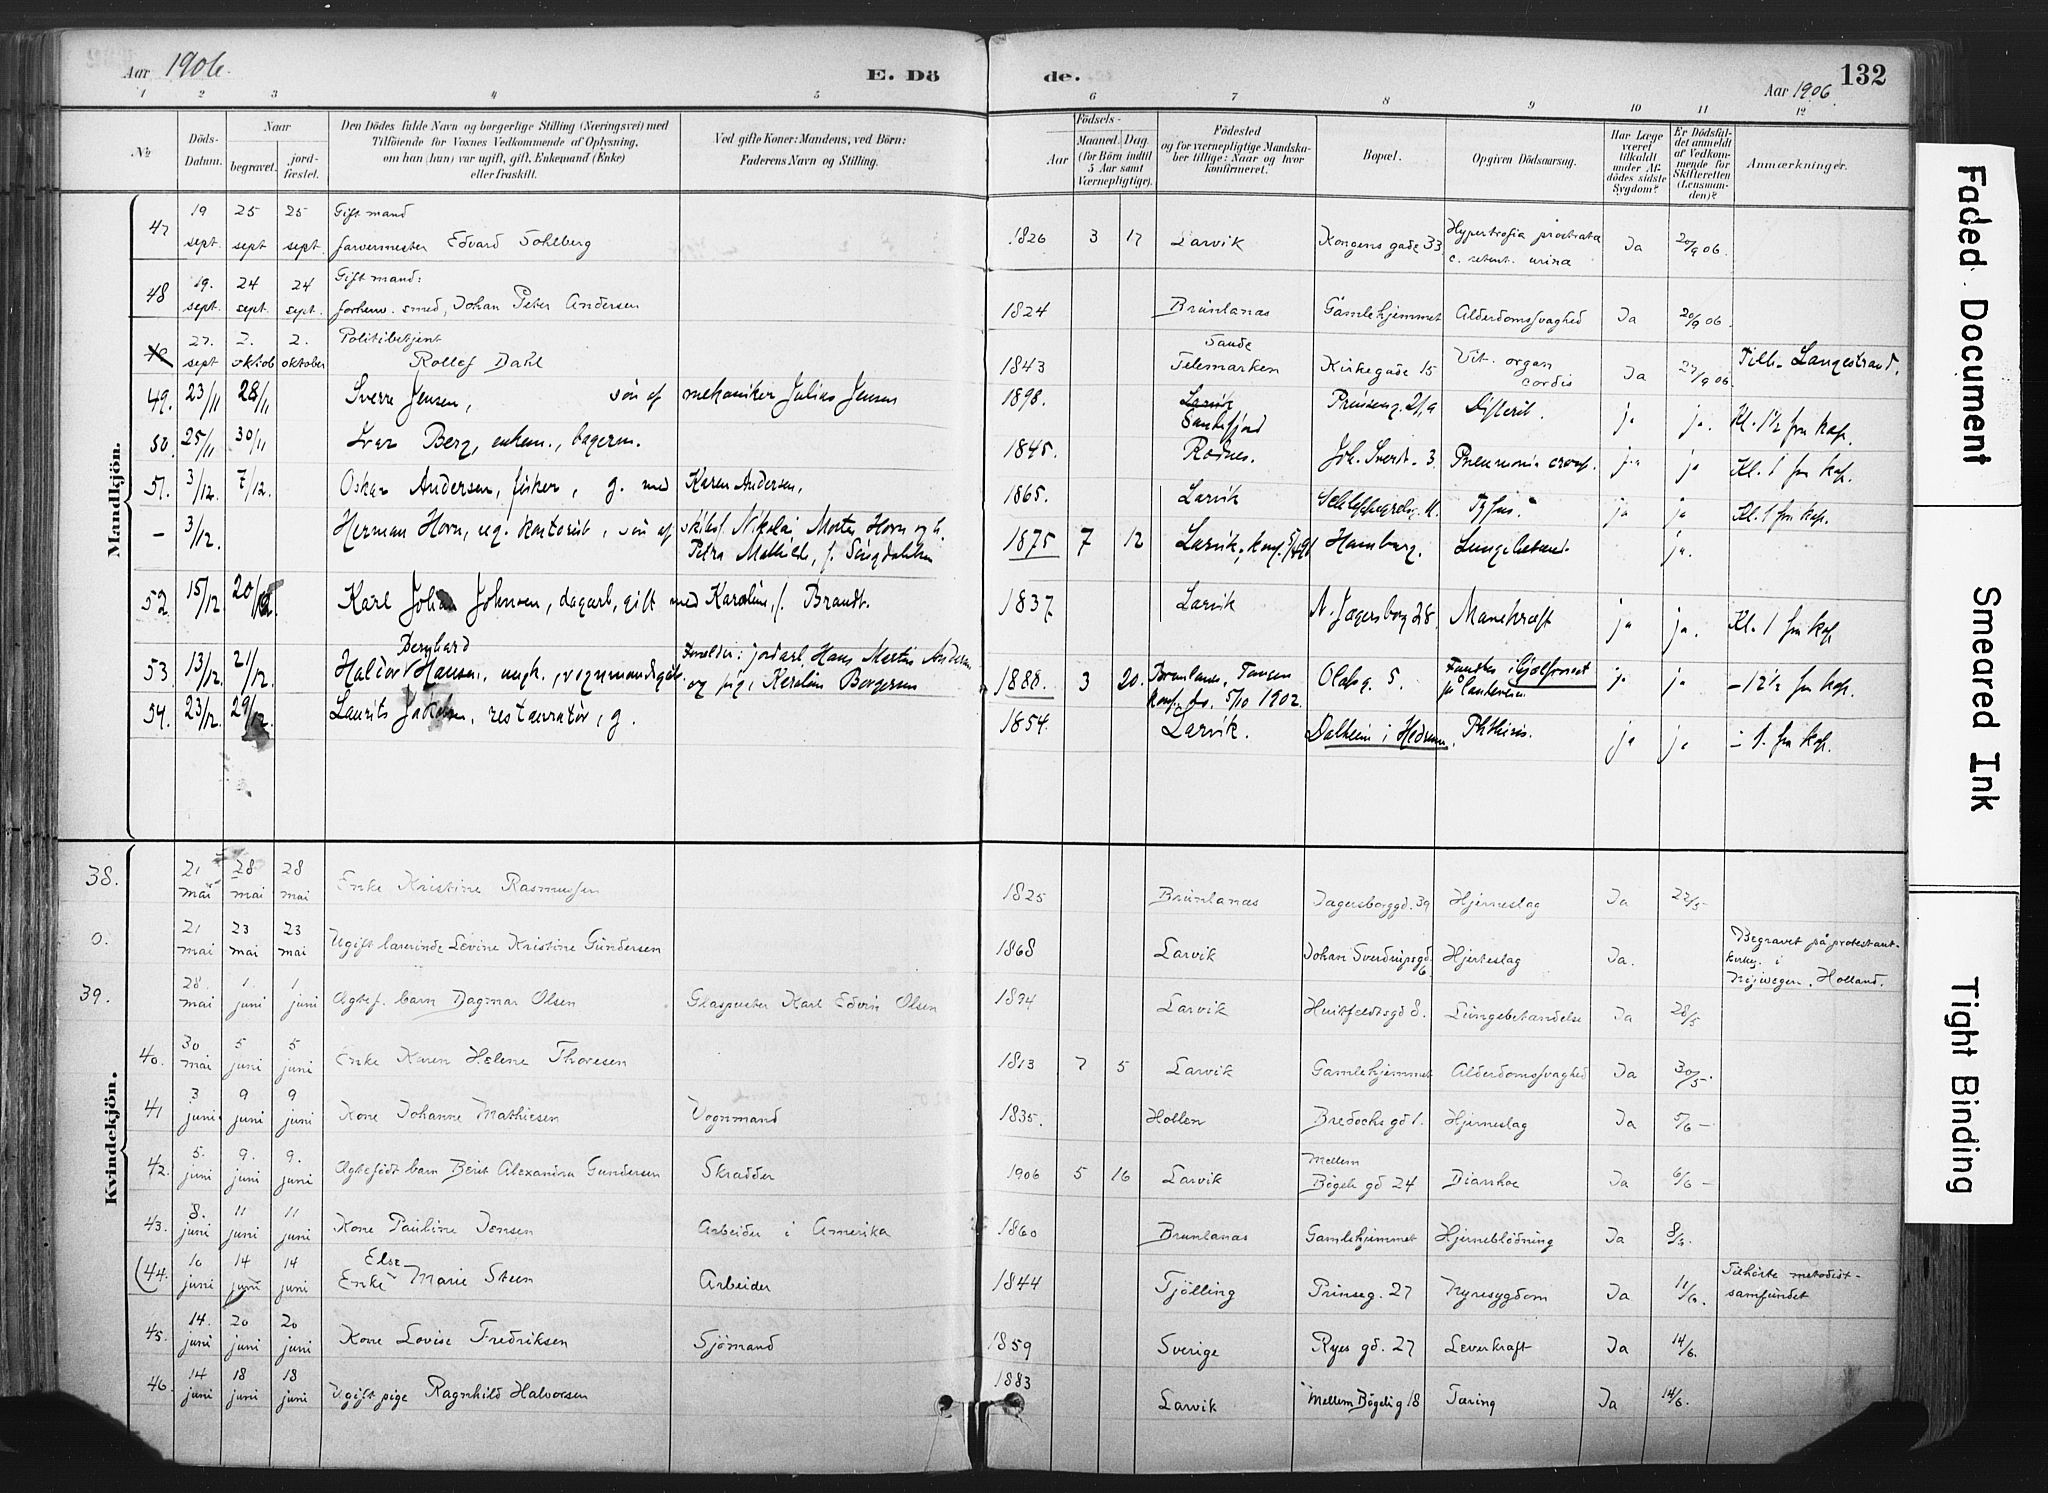 Aar 1906.
E. Dö
de.
Aar 1906.
132
1 2 3 4 5 6 7 8 9 10 11 12
№
Döds-Datum.
Naar
begravet.
jord-fæstet.
Den Dödes fulde Navn og borgerlige Stilling (Næringsvei) med
Tilföiende for Voxnes Vedkommende af Oplysning,
om han (hun) var ugift, gift, Enkemand (Enke)
eller fraskilt.
Ved gifte Koner: Mandens, ved Börn:
Faderens Navn og Stilling.
Födsels-
Aar
Maaned. Dag
(for Börn indtil
5 Aar samt
Værnepligtige).
Födested
og for værnepligtige Mandska-
ber tillige: Naar og hvor
konfirmeret.
Bopæl.
Opgiven Dödsaarsag.
Har Læge
været
tilkaldt
under Af-
dödes sidste
Sygdom?
Er Dödsfal-
det anmeldt
af Vedkom-
mende for
Skifteretten
(Lensman-
den)?
Anmærkninger.
Mandkjön.
47 19 sept. 25 sept 25 sept. Gift mand
farvermester Edvard Sohlberg 1826 3 17 Larvik Kongens gade 33 Hypertrofia prostrata
c. retent. urina Ja 20/9 06.
48 19. sept. 24 sept. 24 sept. Gift mand:
forhenv. smed, Johan Peter Andersen 1824 Brunlanæs Gamlehjemmet Alderdomssvaghed Ja 20/9 06
27. sept 2. oktob 2. oktober Politibetjent
Rollef Dahl 1843 Sande
Telemarken Kirkegade 15 Vit. organ
cordis Ja 27/9 06. Tilh. Langestrand.
49. 23/11 28/11 Sverre Jensen, sön af mekaniker Julius Jensen 1898. Larvik
Sandefjord Prinseng. 21a Difterit. ja ja. Kl. 1½ fra kap.
50. 25/11 30/11 Iver Berg, enkem., bagerm. 1845. Rödnes. Joh. Sverdr. 3 Pneumonia croup. ja ja Kl. 1 fra kap.
51. 3/12. 7/12. Oskar Andersen, fisker, g. med Karen Andersen, 1865. Larvik Tyfus. ja ja Kl. 1 fra kap.
- 3/12. Herman Horn, ug. kontorist, sön af skibsf. Nikolai Morten Horn og h.
Petra Mathilde, f. Singdahlsen 1875 7 12 Larvik, konf. Hamburg. Lungebetænd. ja.
52. 15/12 20/12. Karl Johan Johnsen, dagarb., gift med Karoline, f. Brandt. 1837 Larvik N. Jegersborg 28, Mavekræft ja ja. Kl. 1 fra kap.
53. 13/12. 21/12. Haldor Bernhard Hansen, ungk., vognmandsgut. Forælder: jordarb. Hans Martin Andersen
og pige, Karoline Borgersen 1888. 3 20. Brunlanes, Tangen
konf. ds. 5/10 1902. Olafsg. 5. Fundet i Gjelfosset
på landeveien ja ja - 12½ fra kap.
54. 23/12. 29/12. Laurits Jakobsen, restauratör, g. 1854. Larvik. Dalheim i Hedrum. Phthisis. ja ja - 1. fra kap.
Kvindekjön.
38. 21 mai 28 mai 28 mai Enke Kristine Rasmussen 1825 Brunlanæs Jagersborggd. 39 Hjerneslag Ja 22/5 -
0. 21 mai 23 mai 23 mai Ugift lærerinde Levine Kristine Gundersen 1868 Larvik Johan Sverdrupsgd.
6 Hjerteslag Ja. Begravet på protestant-
kirkeg. i
Nijwegen. Holland.
39. 28. mai 1. juni 1. juni Ægtef. barn Dagmar Olsen Glaspuster Karl Edvin Olsen 1894 Larvik Huitfeldtsgd 8. Lungebetændelse Ja 28/5
40. 30 mai 5 juni 5 juni Enke Karen Helene Thoresen 1813 7 5 Larvik Gamlehjemmet Alderdomssvaghed Ja 30/5 -
41 3 juni. 9 juni 9 juni Kone Johanne Mathiesen Vognmand 1835. Hollen Bredochs gd 1. Hjerneslag Ja 5/6 -
42. 5. juni 9. juni 9. juni Ægtefödt barn Berit Alexandra Gundersen Skrædder 1906 5 16 Larvik Mellem
Bögeli gd 24 Diarrhoe Ja 6/6 -
43. 8. juni 11 juni 11 juni Kone Pauline Jensen Arbeider i Amerika 1860 Brunlanas Gamlehjemmet Hjerneblödning Ja 8/6.
(44. 10 juni 14 juni 14 juni Enke Else Marie Steen Arbeider 1844 Tjölling Prinseg. 27 Nyresygdom Ja 11/6. Tilhörte metodist-
samfundet
45. 14. juni 20 juni 20 juni Kone Lovise Fredriksen Sjömand 1859 Sverige Ryes gd. 27 Leverkræft Ja 14/6.
46. 14 juni 18 juni 18 juni Ugift pige Ragnhild Halvorsen 1883 Larvik Mellem Bögelig 18 Tæring Ja 14/6.
Faded Document
Smeared Ink
Tight Binding